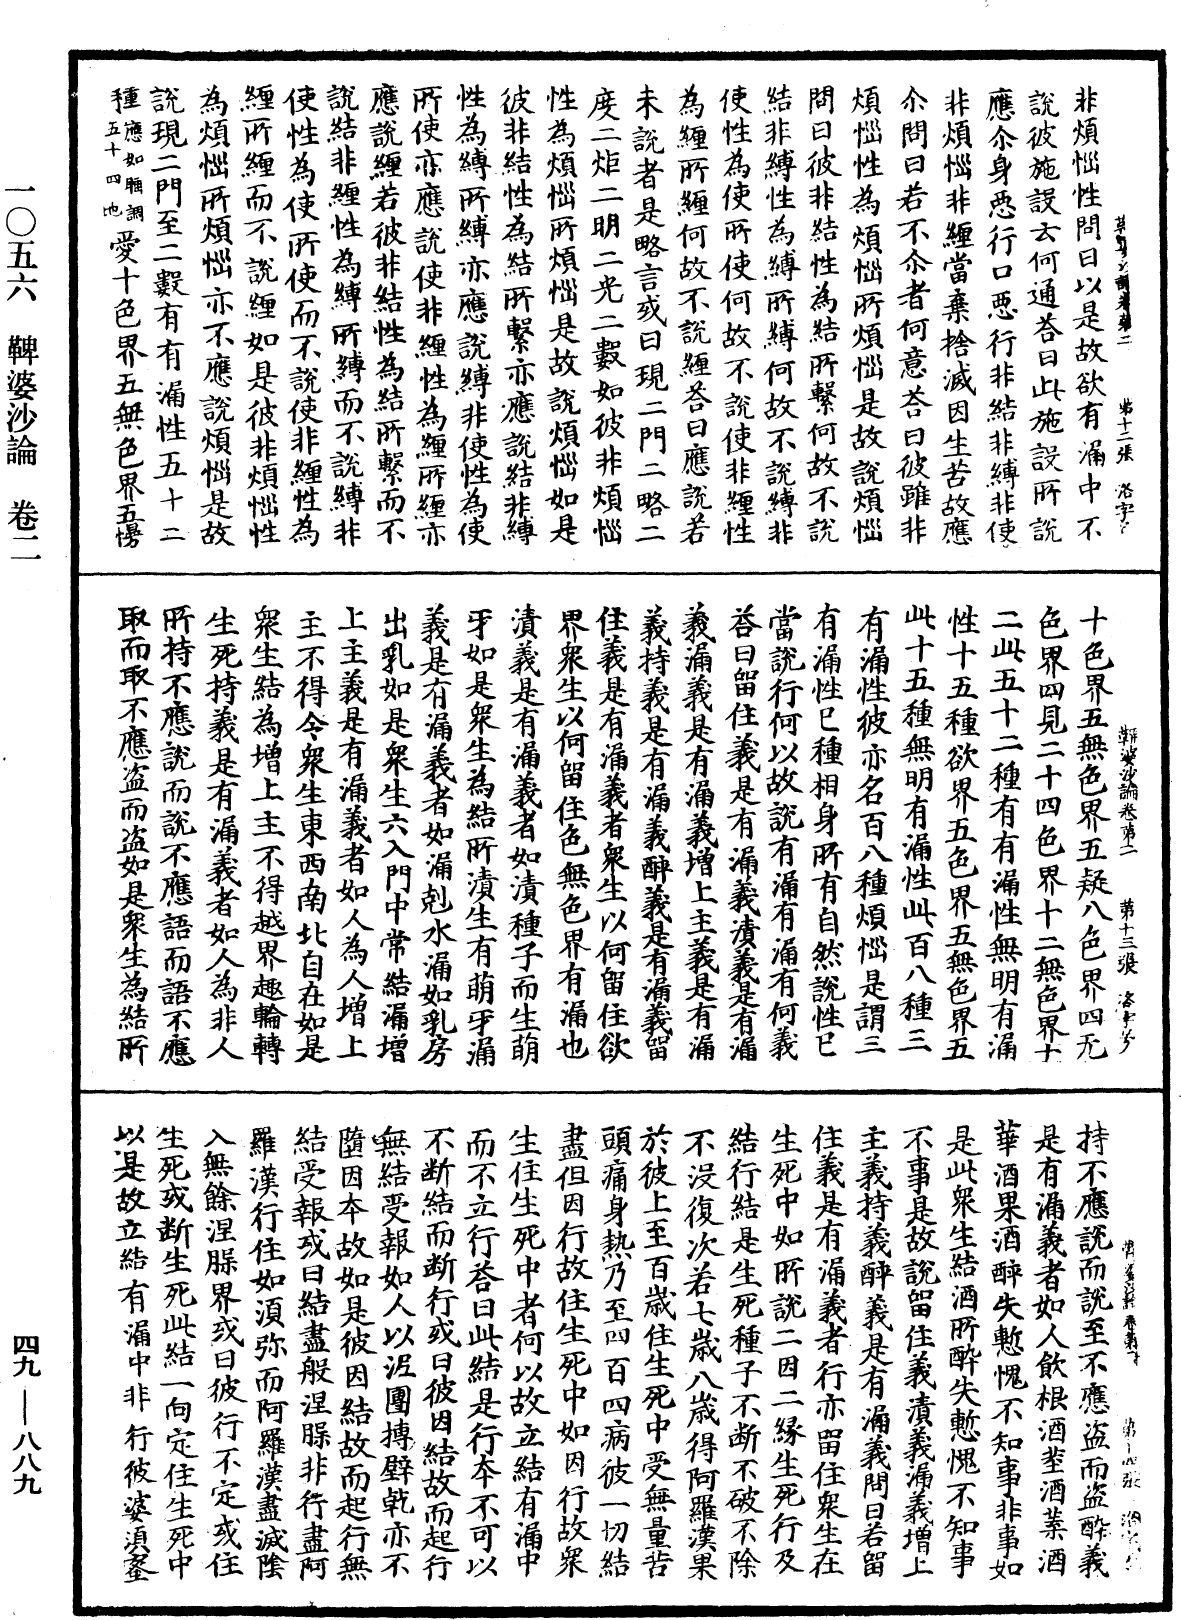 非煩惱性問曰以是故欲有漏中不
說彼施設云何通荅曰此施設所說
應尒身惡行口惡行非結非縛非使
非煩惱非纏當棄捨滅因生苦故應
尒問曰若不尒者何意荅曰彼雖非
煩惱性為煩惱所煩惱是故說煩惱
問曰彼非結性為結所繫何故不說
結非縛性為縛所縛何故不說縛非
使性為使所使何故不說使非纏性
為纏所纏何故不說纏荅曰應說若
未說者是略言或曰現二門二略二
度二炬二明二光二數如彼非煩惱
性為煩惱所煩惱是故說煩惱如是
彼非結性為結所繫亦應說結非縛
性為縛所縛亦應說縛非使性為使
所使亦應說使非纏性為纏所纏亦
應說纏若彼非結性為結所繫而不
說結非纏性為縛所縛而不說縛非
使性為使所使而不說使非纏性為
纏所纏而不說纏如是彼非煩惱性
為煩惱所煩惱亦不應說煩惱是故
說現二門至二數有有漏性五十二
種應如輞調五十四也愛十色界五無色界五慢
十色界五無色界五疑八色界四无
色界四見二十四色界十二無色界十
二此五十二種有有漏性無明有漏
性十五種欲界五色界五無色界五
此十五種無明有漏性此百八種三
有漏性彼亦名百八種煩惱是謂三
有漏性已種相身所有自然說性已
當說行何以故說有漏有漏有何義
荅曰留住義是有漏義漬義是有漏
義漏義是有漏義增上主義是有漏
義持義是有漏義醉義是有漏義留
住義是有漏義者衆生以何留住欲
界衆生以何留住色無色界有漏也
漬義是有漏義者如漬種子而生萌
牙如是衆生為結所漬生有萌牙漏
義是有漏義者如漏剋水漏如乳房
出乳如是衆生六入門中常結漏增
上主義是有漏義者如人為人增上
主不得令衆生東西南北自在如是
衆生結為增上主不得越界趣輪轉
生死持義是有漏義者如人為非人
所持不應說而說不應語而語不應
取而取不應盗而盗如是衆生為結所
持不應說而說至不應盗而盗醉義
是有漏義者如人飲根酒莖酒葉酒
華酒果酒醉失慙愧不知事非事如
是此衆生結酒所醉失慙愧不知事
不事是故說留住義漬義漏義增上
主義持義醉義是有漏義問曰若留
住義是有漏義者行亦留住衆生在
生死中如所說二因二緣生死行及
結行結是生死種子不断不破不除
不没復次若七歲八歲得阿羅漢果
於彼上至百歲住生死中受無量苦
頭痛身熱乃至四百四病彼一切結
盡但因行故住生死中如因行故衆
生住生死中者何以故立結有漏中
而不立行荅曰此結是行夲不可以
不断結而断行或曰彼因結故而起行
無結受報如人以泥團摶壁乾亦不
墮因夲故如是彼因結故而起行無
結受報或曰結盡般涅槃非行盡阿
羅漢行住如湏弥而阿羅漢盡滅陰
入無餘涅槃界或曰彼行不定或住
生死或断生死此結一向定住生死中
以是故立結有漏中非行彼婆湏蜜
鞞婆沙論卷第二 第十二張 洛字号
鞞婆沙論卷第二 第十三張 洛字号
一〇五六 鞞婆沙論 卷二
四九—八八九